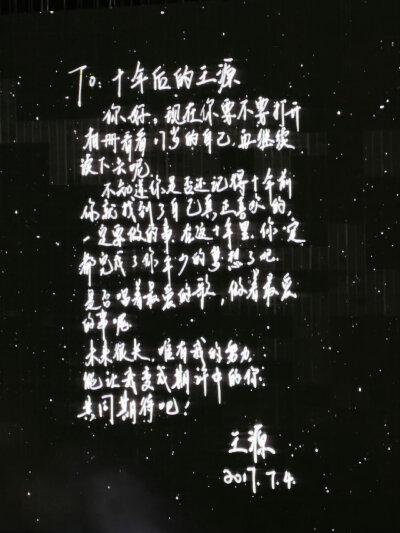 To: 十年后的王源
你好，现在你要不要打开
相册看看17岁的自己，再继续
读下去呢
不知道你是否还记得十年前
你就找到了自己真正喜欢的，
一定要做的事，在这十年里，你一定
都完成了你年少的梦想了吧
是否唱着最爱的歌，做着最爱
的事呢
未来很长，唯有我的努力
能让我变成期许中的你
共同期待吧！
王源
2017.7.4.